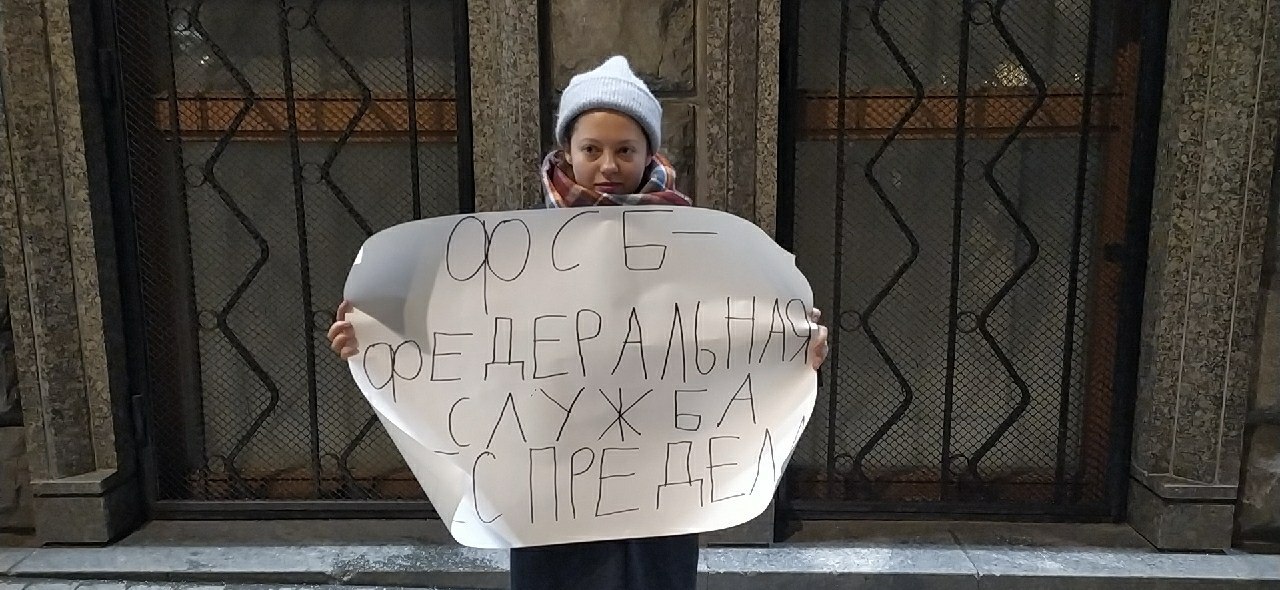 ФСБ –
ФЕДЕРАЛЬНАЯ
СЛУЖБА
СПРЕДЕЛ